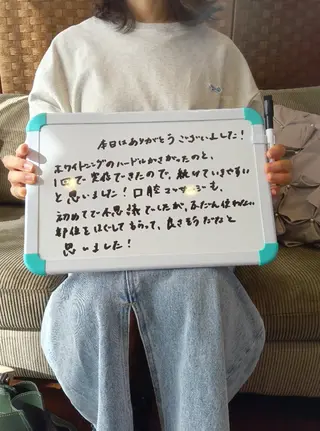 本日はありがとうございました!
ホワイトニングのハードルがさがったのと、
1回で実信できたので、続けていきます
と思いました!口腔マッサージも、
初めてで不思議でしたが、ふだん使わない
部位をほぐしてもらって、良さそうだなと
思いました!